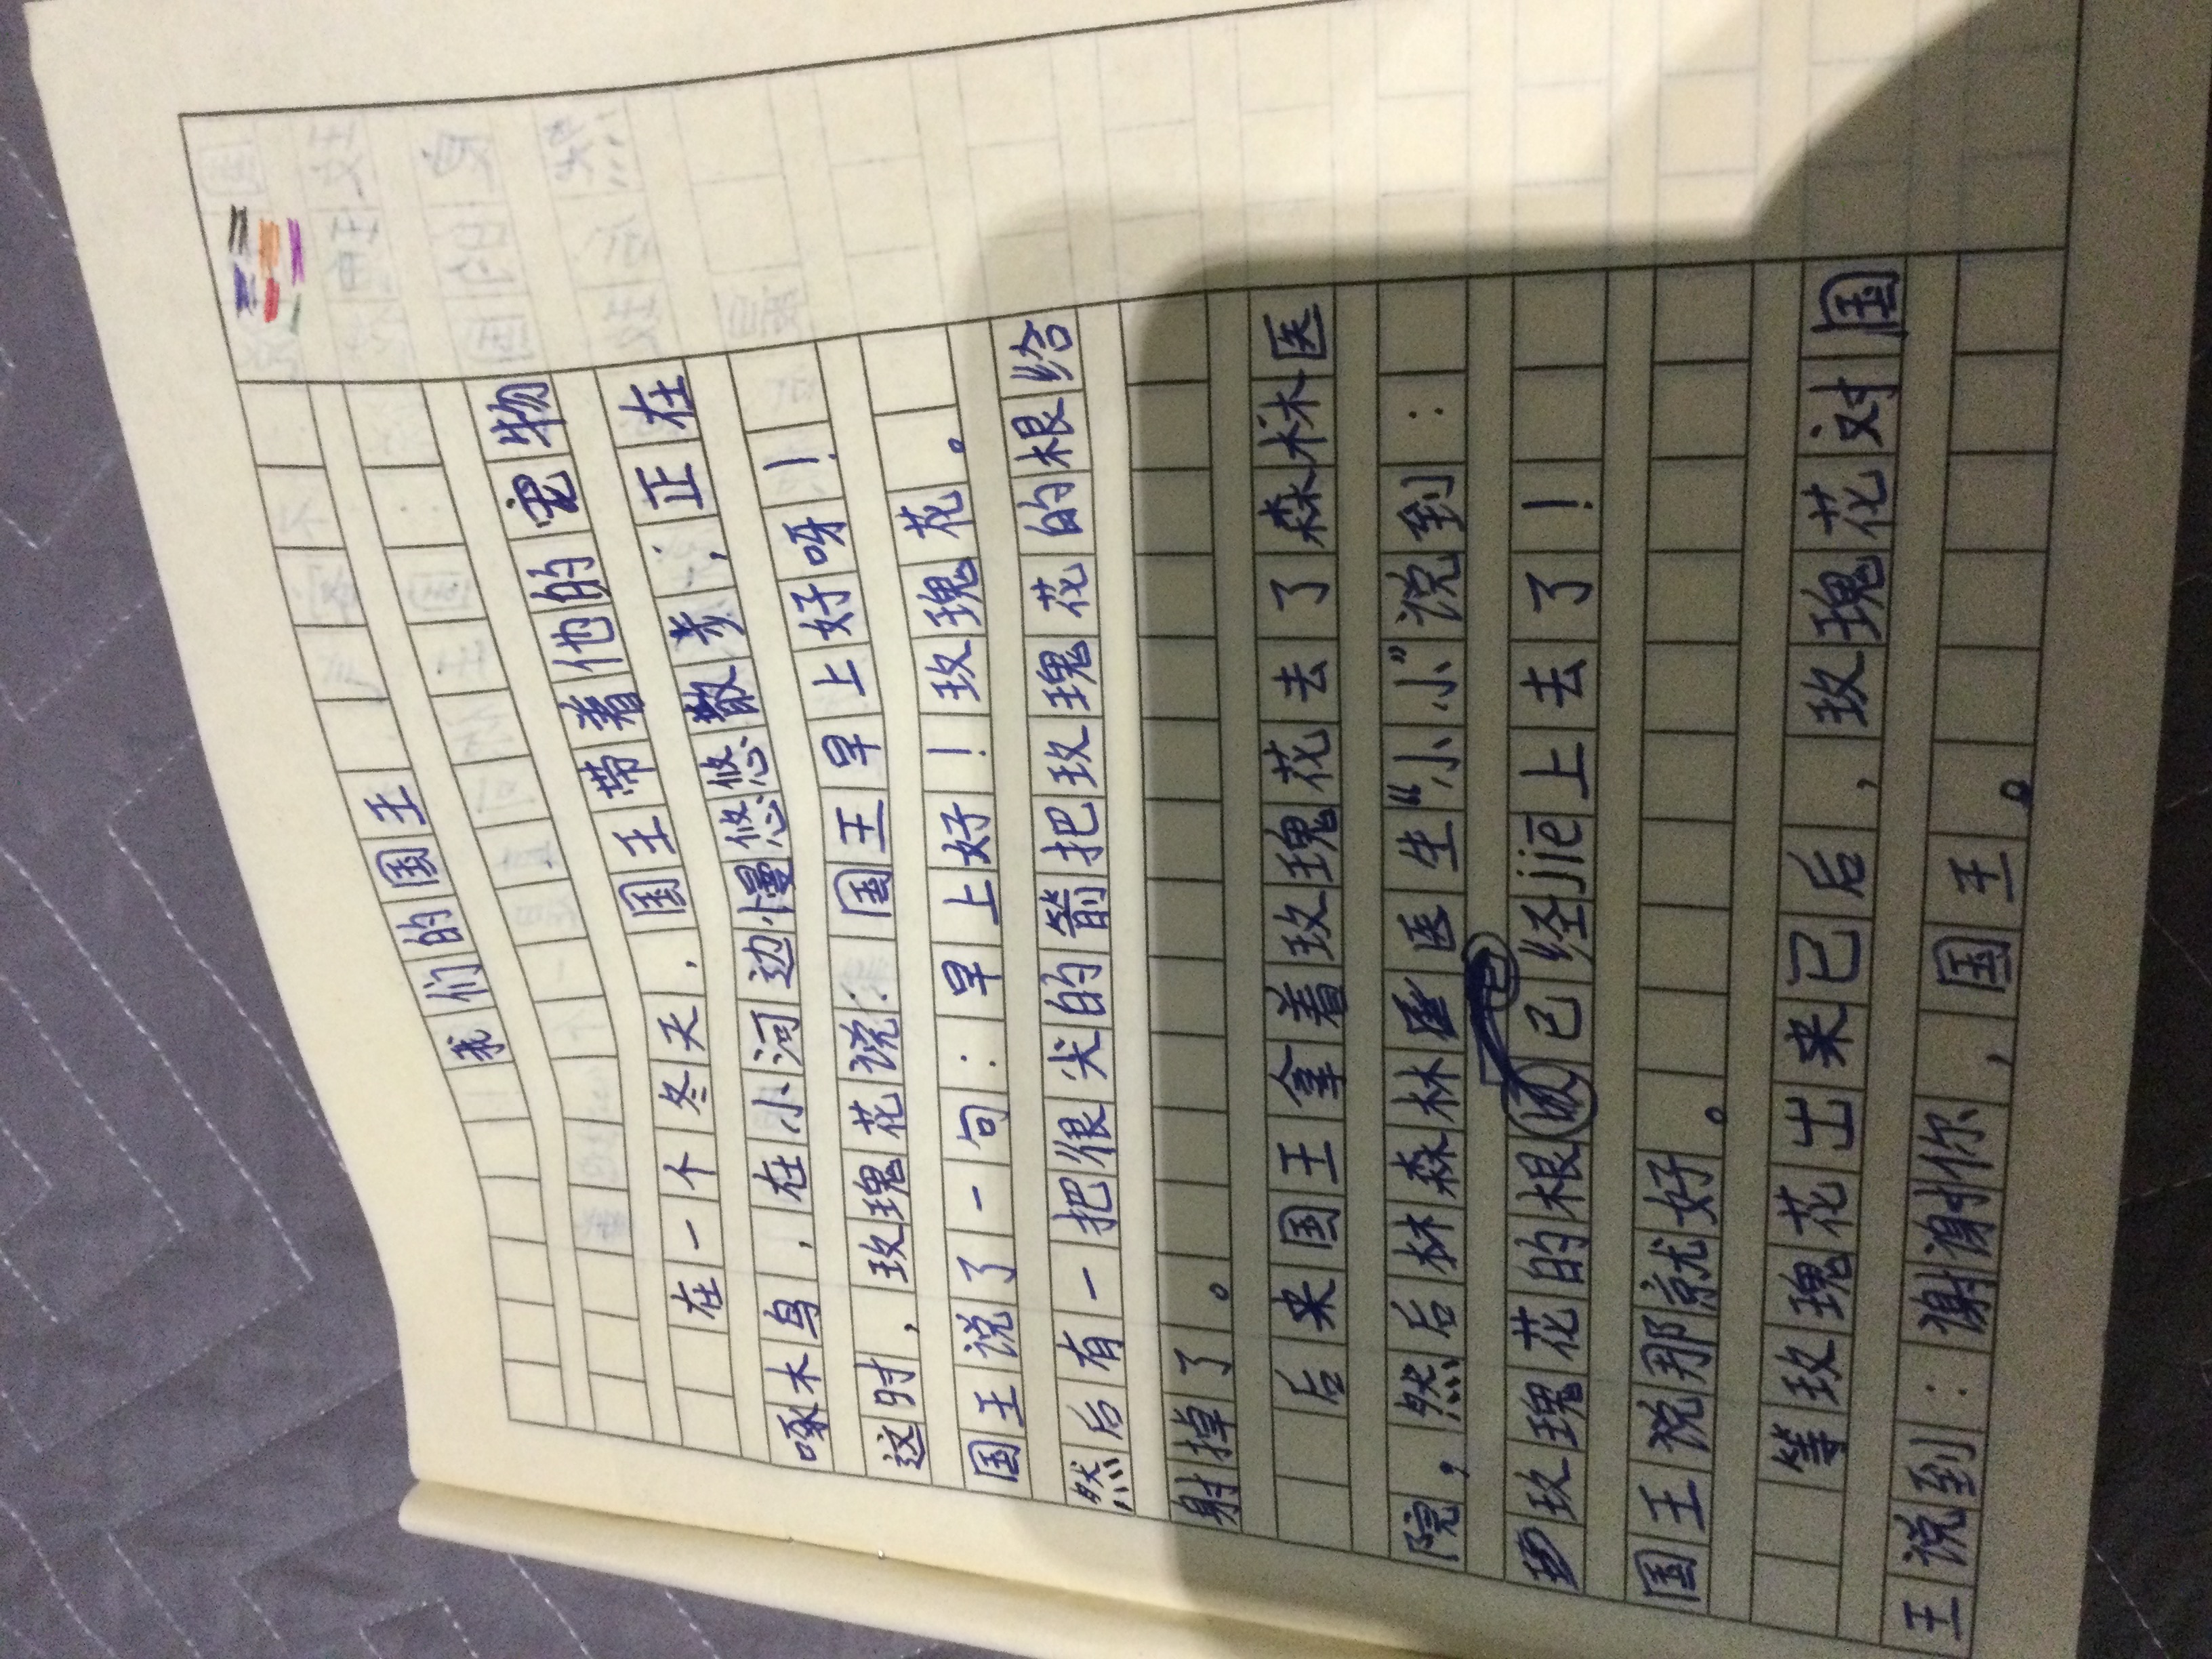 我们的国王
在一个冬天，国王带着他的宠物
啄木鸟，在小河边慢悠悠散步，正在
这时，玫瑰花说：国王早上好呀！
国王说了一句：早上好！玫瑰花。
然后有一把很尖的箭把玫瑰花的根给
射掉了。
后来国王拿着玫瑰花去了森林医
院，然后林森林医生“小小”说到：
玫瑰花的根已经jiē上去了！
国王说那就好。
等玫瑰花出来已后，玫瑰花对国
王说到：谢谢你，国王。